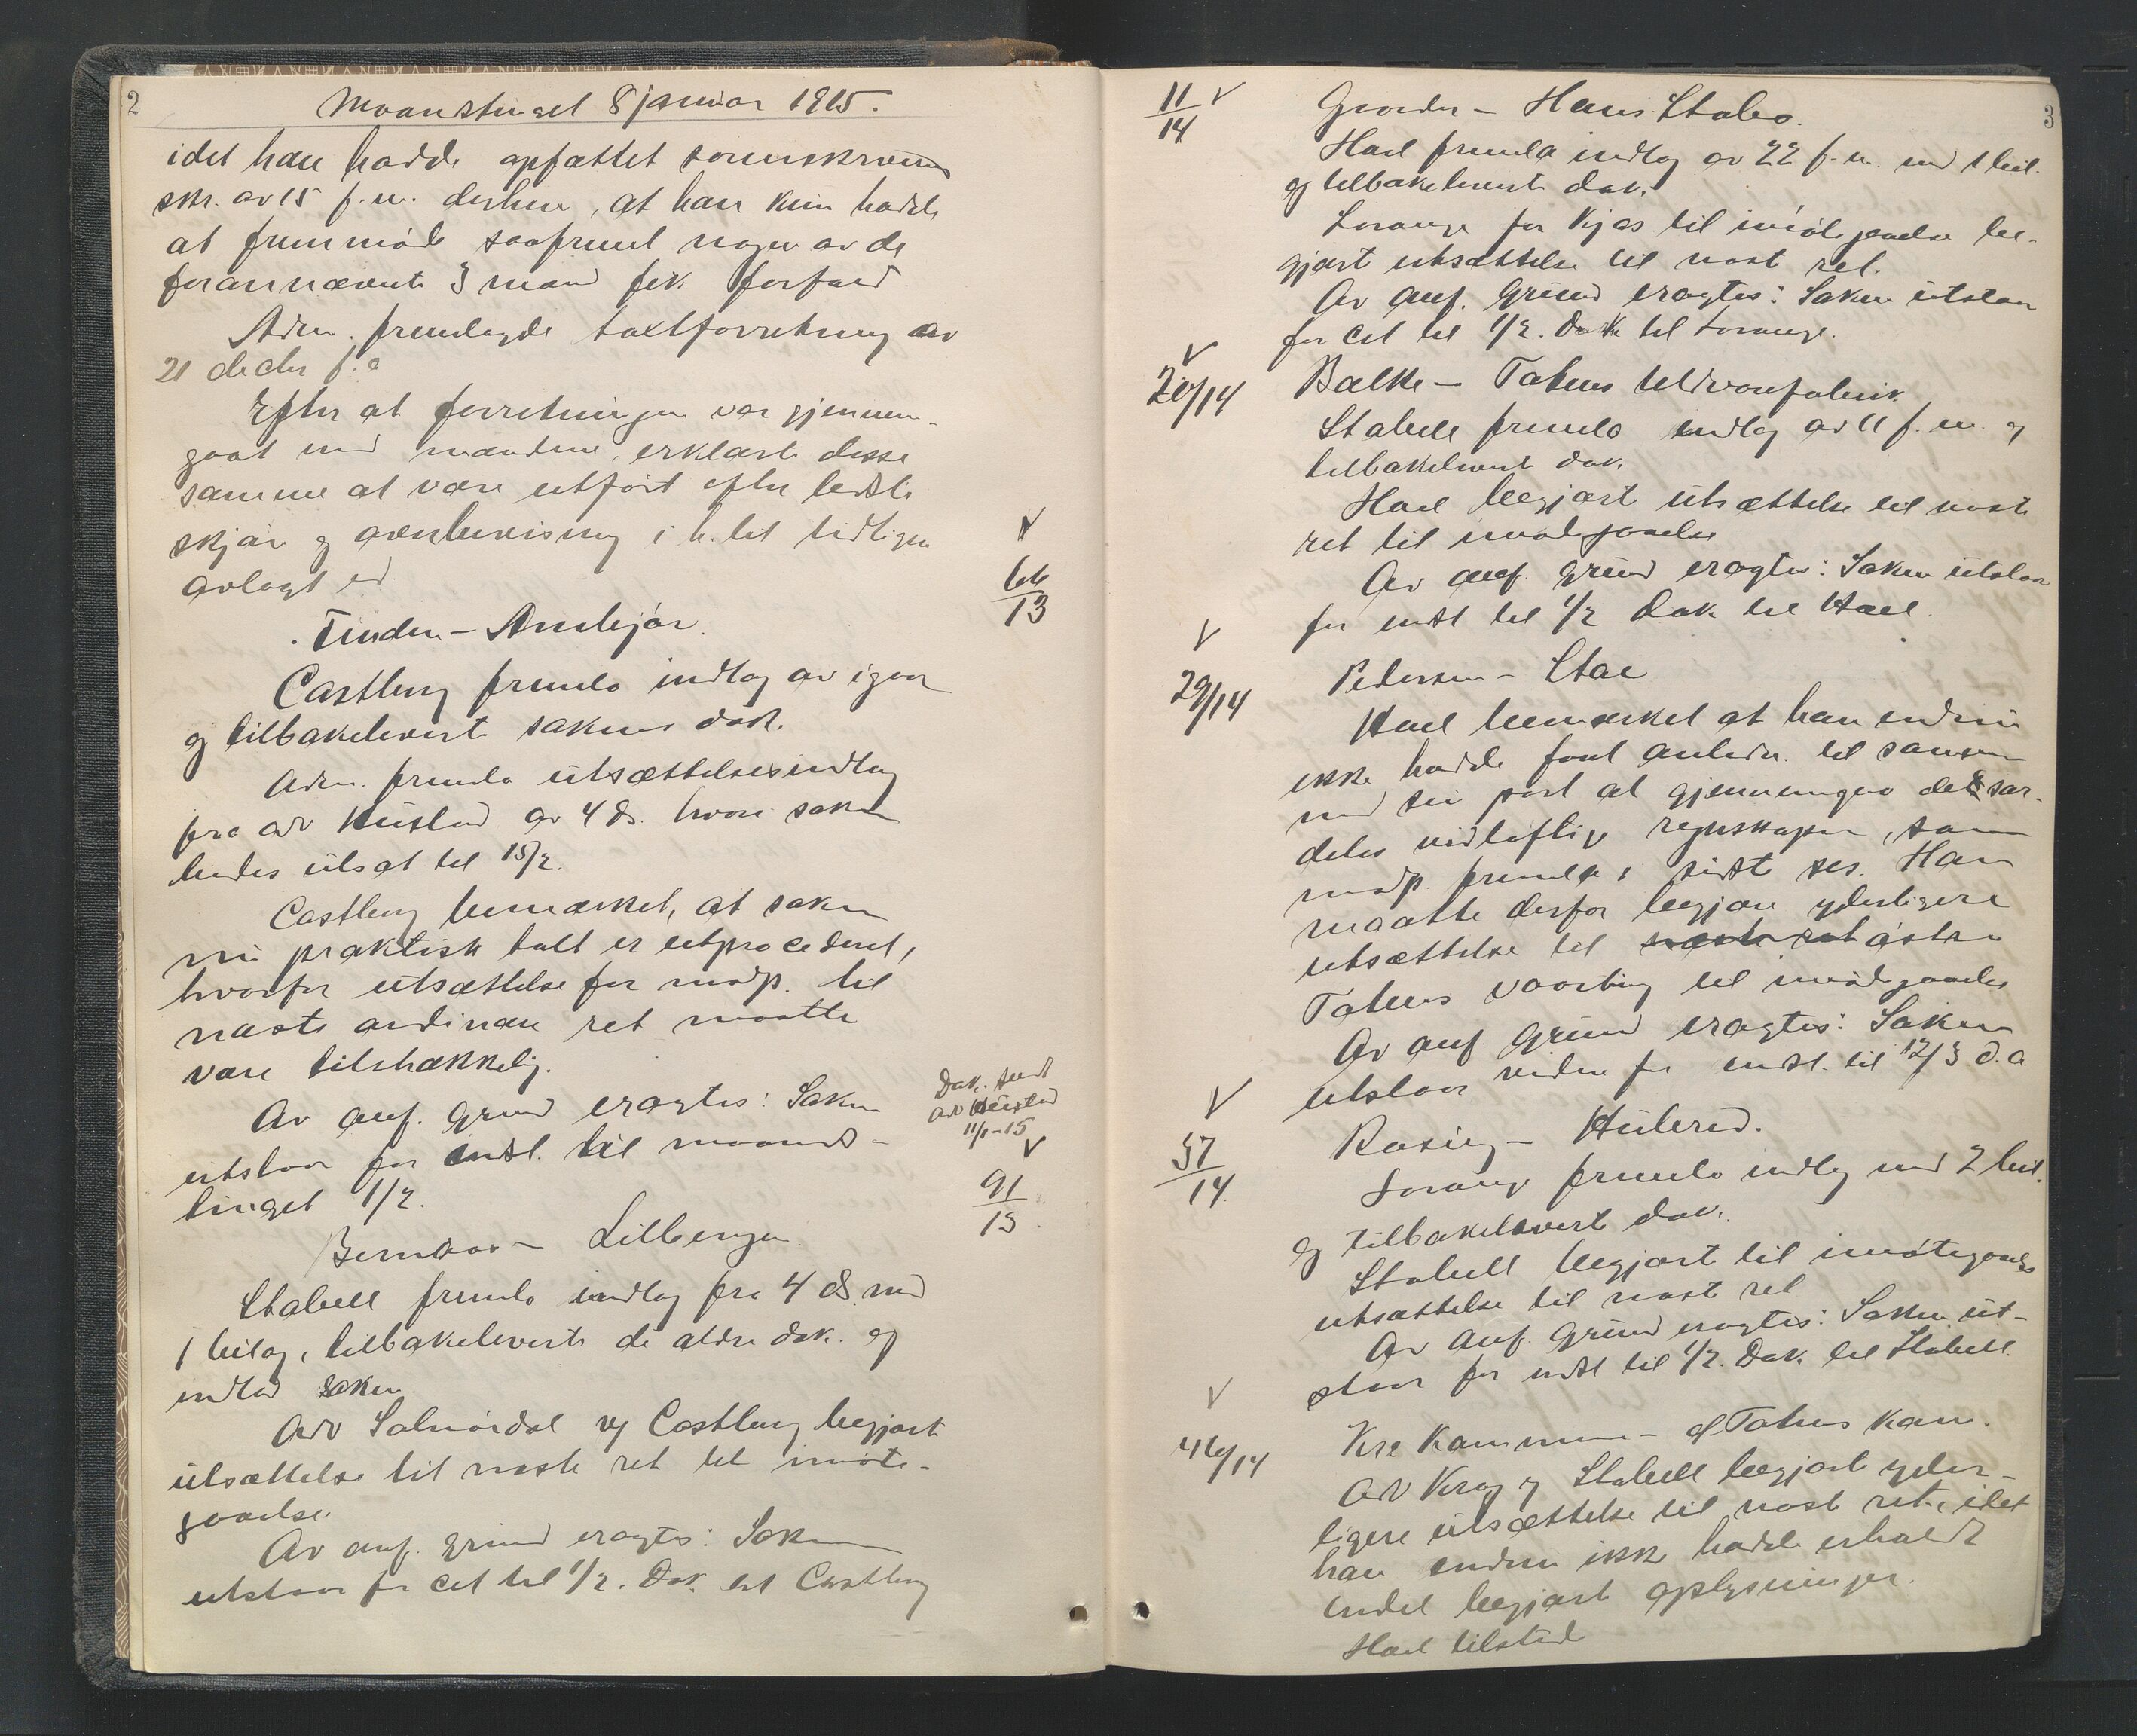 2
Maanstinget 8 januar 1915.
idet han hadde opfattet sorenskriverens
skr. av 15 f.m. derhen, at han kun hadde
at fremmøde saafremt nogen av de
forannævnte 3 mænd fik forfald
Adm. fremlagde takstforretning av
21 decbr f.a
Efter at forretningen var gjennem-
gaat med mændene, erklærte disse
samme at være utført efter bedste
skjøn og overbevisning i h.t. til tidligere
avlagt ed.
66
13
Tinden - Arnkjør.
Castberg fremla indlæg av igaar
og tilbakeleverte sakens dok.
Adm. fremla utsættelsesindlæg
fra adv Huistad av 4 ds. hvori saken
bedes utsat til 15/2.
Castberg bemærket, at saken
nu praktisk talt er utprocedert,
hvorfor utsættelse for modp. til
næste ordinære ret maatte
være tilstrækkelig.
Av anf. grund eragtes: Saken
utstaar for indl. til maaneds-
tinget 1/2.
Dok. sendt
adv Huistad
11/1-15
91
13
- Lillengen
Stabell fremla indlæg fra 4 ds. med
1 bilag, tilbakeleverte de ældre dok. og
indlod saken
Adv Solnørdal vg Castberg begjært
utsættelse til næste ret til imøte-
gaaelse.
Av anf. grund eragtes: Saken
utstaar for cit til 1/2. Dok til Castberg
3
11
14
- Hans Stabo.
Hoel fremla indlæg av 22 f.m. med 1 bil.
og tilbakeleverte dok.
Lorange for Kjøs til imøtegaaelse be-
gjært utsættelse til næste ret.
Av anf. grund eragtes: Saken utstaar
for cit til 1/2. Dok til Lorange.
20/14
Balke - Totens Uldvarefabrik
Stabell fremla indlæg av 11 f.m. og
tilbakeleverte dok.
Hoel begjært utsættelse til næste
ret til imøtegaaelse
Av anf. grund eragtes: Saken utstaar
for indst til 1/2 Dok til Hoel.
29/14
Pedersen - Stae
Hoel bemærket at han endnu
ikke hadde faat anledn. til sammen
med sin part at gjennemgaa det sær-
deles vidløftige regnskaper, som
modp. fremla i sidste ses. Han
maatte derfor begjære yderligere
utsættelse til næste ret østre
Totens vaarting til imødegaaelse
Av anf. grund eragtes: Saken
utstaar videre for indst. til 12/3 d.a
37
14.
Rosing - Hulered.
Lorange fremla indlæg med 2 bil.
og tilbakelevert dok.
Stabell begjært til imøtegaaelse
utsættelse til næste ret
Av anf. grund eragtes: Saken ut-
staar for indst til 1/2. Dok til Stabell.
46/14
Kra Kommune - Ø Totens Kom.
Adv Krag vg Stabell begjært yder-
ligere utsættelse til næste ret, idet
han endnu ikke hadde erholdt
endel begjært oplysninger.
Hoel tilsted